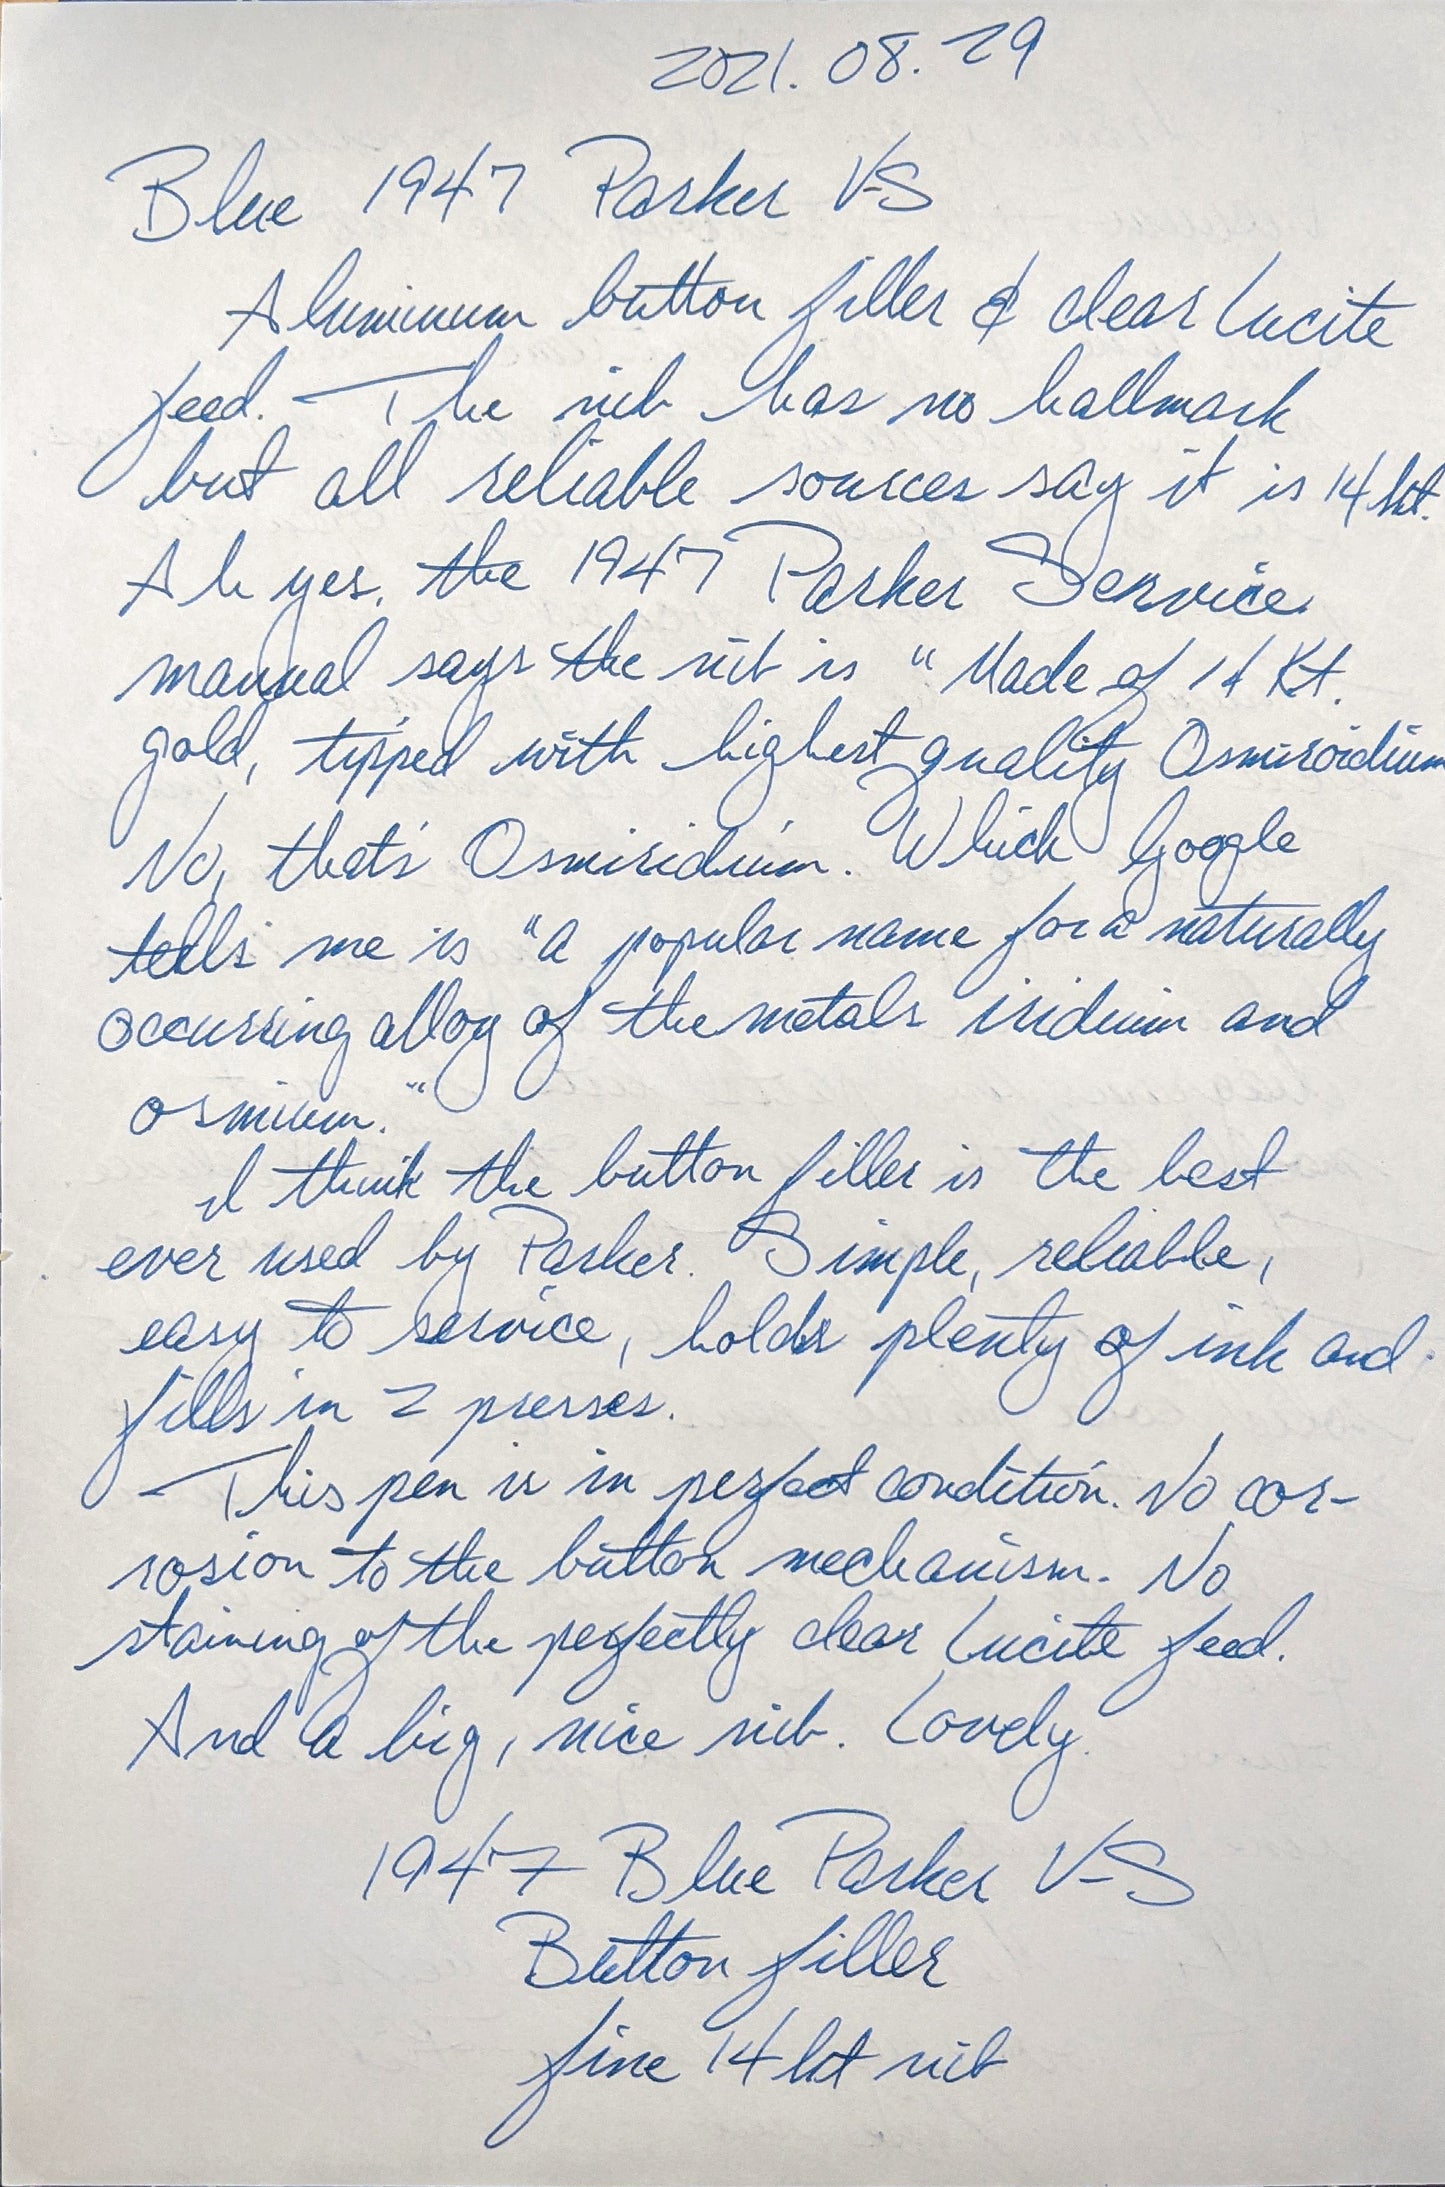 2021.08.29
Blue 1947 Parker V-S
Aluminum button filler & clear Lucite
feed. The nib has no hallmark
but all reliable sources say it is 14 kt.
Ah yes, the 1947 Parker Service
manual says the nib is "Made of 14 Kt.
gold, tipped with highest quality Osmiroidium
No, that's Osmiridium. Which Google
tells me is "a popular name for a naturally
occurring alloy of the metals iridium and
osmium."
I think the button filler is the best
ever used by Parker. Simple, reliable,
easy to service, holds plenty of ink and
fills in 2 presses.
This pen is in perfect condition. No cor-
rosion to the button mechanism. No
staining of the perfectly clear Lucite feed.
And a big, nice nib. Lovely.
1947 Blue Parker V-S
Button filler
fine 14 kt nib